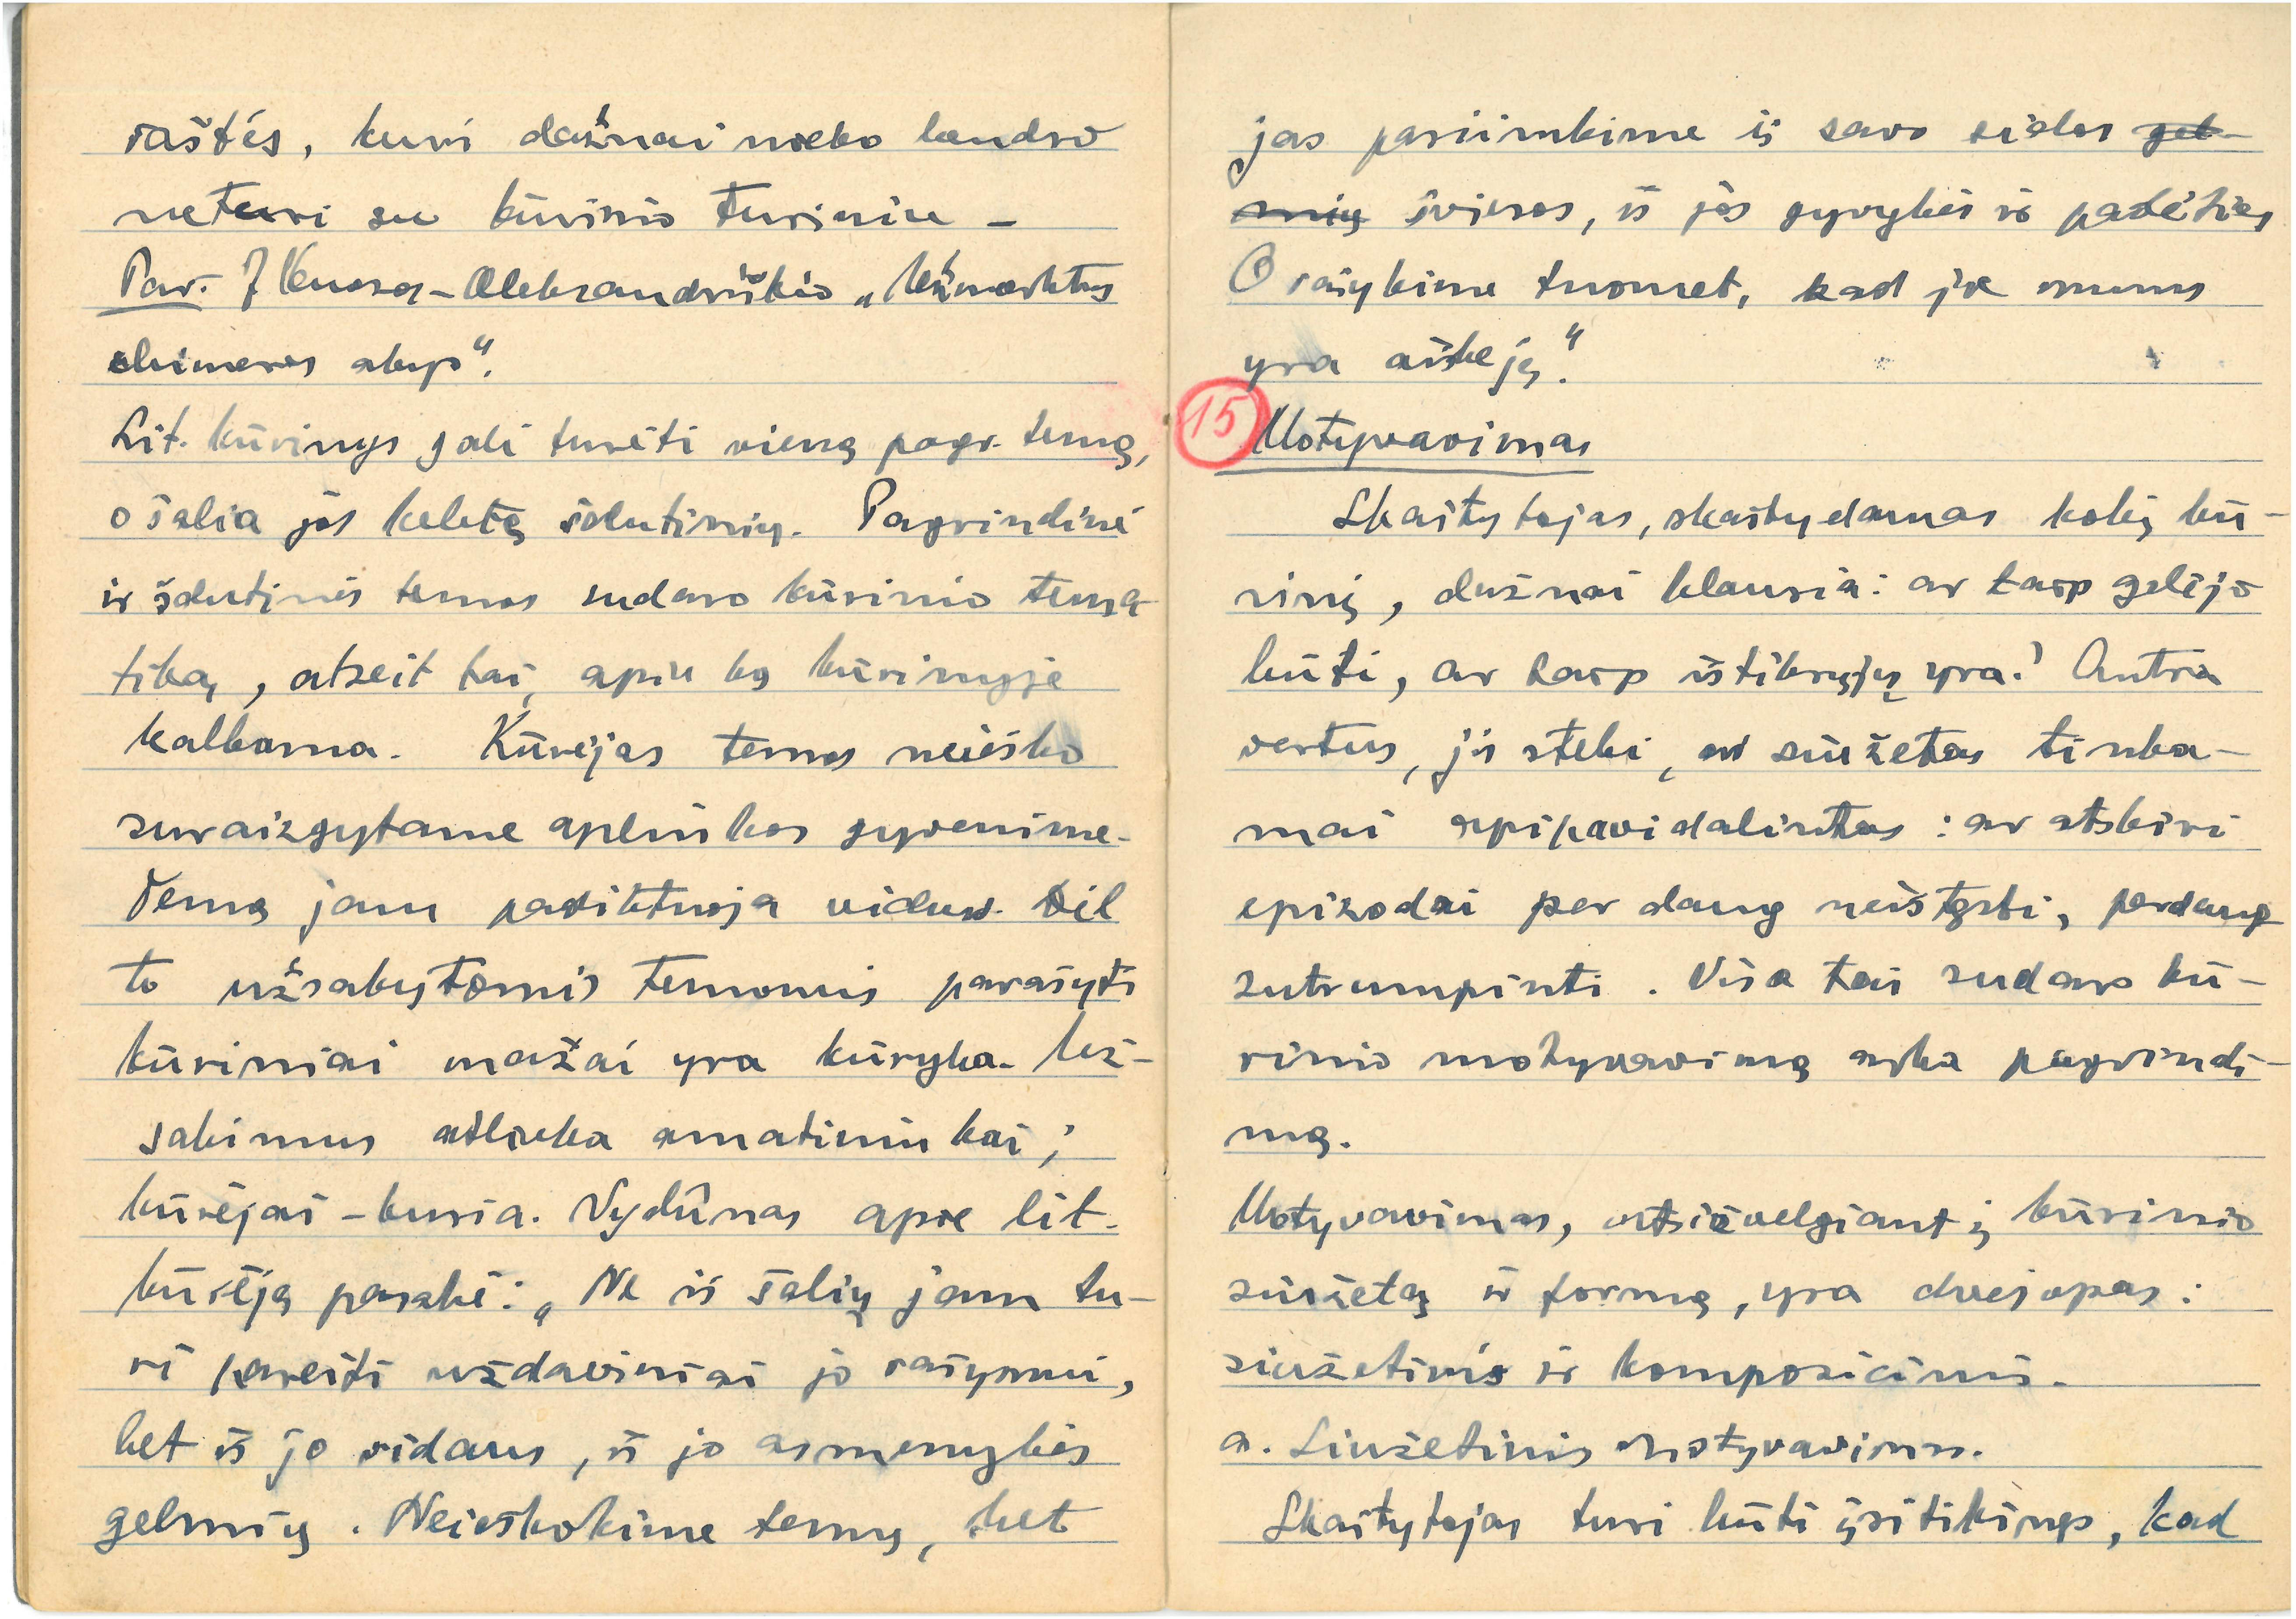 raštės, kuri dažnai nieko bendro
neturi su kūrinio turiniu –
Pav. J Kuosa-Aleksandriškio „Užmerktus
chimeros akys“.
Lit. kūrinys gali turėti vieną pagr. temą,
o šalia jos keletą šalutinių. Pagrindinė
ir šalutinės temos sudaro kūrinio tema-
tiką, atseit tai, apie ką kūrinyje
kalbama. Kūrėjas temos neieško
suraizgytame aplinkos gyvenime.
Temą jam padiktuoja vidus. Dėl
to užsakytomis temomis parašyti
kūriniai mažai yra kūryba. Už-
sakimus atlieka amatininkai;
kūrėjai – kuria. Vydūnas apie lit.
kūrėją pasakė: „Ne iš šalių jam tu-
ri pareiti uždaviniai jo rašymui,
bet iš jo vidaus, iš jo asmenybės
gelmių. Neieškokime temų, bet
jas pasiimkime iš savo sielos gel-
mių šviesos, iš jos gyvybės ir patėties
O rašykime tuomet, kad jie mums
yra aiškeję.“
15 Motyvavimas
Skaitytojas, skaitydamas kokį kū-
rinį, dažnai klausia: ar taip galėjo
būti, ar taip ištikrųjų yra? Antra
vertus, jis stebi, ar siužetas tinka-
mai apipavidalintas: ar atskiri
epizodai per daug neištęsti, perdaug
sutrumpinti. Visa tai sudaro kū-
rinio motyvavimą arba pagrindi-
mą.
Motyvavimas, atsižvelgiant į kūrinio
siužetą ir formą, yra dvejopas:
siužetinis ir kompozicinis.
a. Siužetinis motyvavimas.
Skaitytojas turi būti įsitikinęs, kad